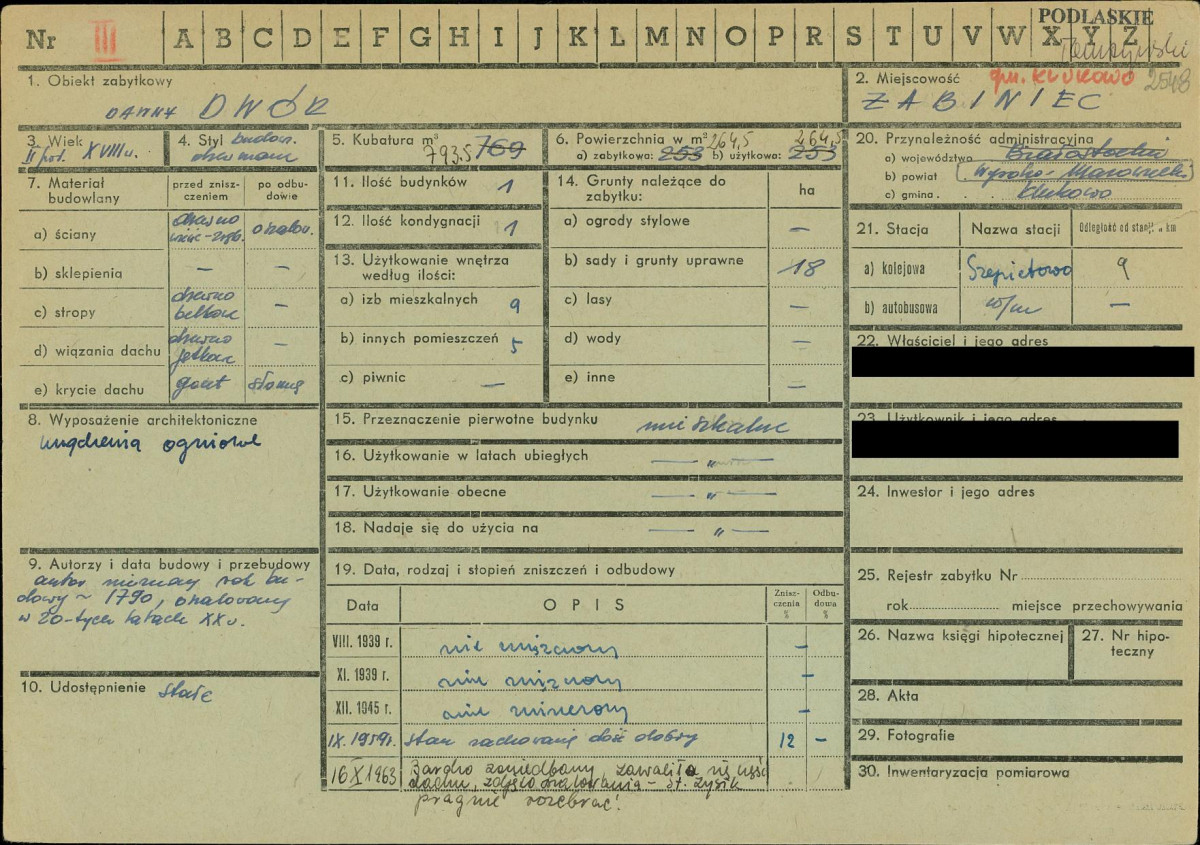 PODLASKIE
Nr III A B C D E F G H I J K L M N O P R S T U V W X Y Z
1. Obiekt zabytkowy
DAWNY DWÓR
2. Miejscowość gm. KLUKOWO 2548
ŻABINIEC
3. Wiek
II poł. XVIII w.
4. Styl budow.
5. Kubatura m³
793.5 769
6. Powierzchnia w m² 264,5 264,5
a) zabytkowa: 253 b) użytkowa: 253
20. Przynależność administracyjna
a) województwo Białostockie
b) powiat Wysoko-Mazowiecki
c) gmina Klukowo
7. Materiał budowlany
przed zniszczeniem
po odbudowie
a) ściany drewno oszalow.
b) sklepienia — —
c) stropy drewno belkow —
d) wiązania dachu drewno jętkow —
e) krycie dachu gont słomą
11. Ilość budynków 1
12. Ilość kondygnacji 1
13. Użytkowanie wnętrza według ilości:
a) izb mieszkalnych 9
b) innych pomieszczeń 5
c) piwnic —
14. Grunty należące do zabytku: ha
a) ogrody stylowe —
b) sady i grunty uprawne 18
c) lasy —
d) wody —
e) inne —
21. Stacja Nazwa stacji Odległość od stacji w km
a) kolejowa Szepietowo 9
b) autobusowa w/m —
22. Właściciel i jego adres
23. Użytkownik i jego adres
8. Wyposażenie architektoniczne
urządzenia ogniowe
15. Przeznaczenie pierwotne budynku mieszkalne
16. Użytkowanie w latach ubiegłych — „ —
17. Użytkowanie obecne — „ —
18. Nadaje się do użycia na — „ —
24. Inwestor i jego adres
9. Autorzy i data budowy i przebudowy
autor nieznany rok bu-
dowy ~ 1790, oszalowany
w 20-tych latach XX w.
19. Data, rodzaj i stopień zniszczeń i odbudowy
Data OPIS Zniszczenia % Odbudowa %
VIII. 1939 r. nie zniszczony —
XI. 1939 r. nie zniszczony —
XII. 1945 r. nie zniszczony —
IX. 1959 r. stan zachowania dość dobry 12 —
16 X 1963 Bardzo zaniedbany, zawaliła się część
dachu, zdjęto oszalowania - St. Zysik
pragnie rozebrać!
10. Udostępnienie stałe
25. Rejestr zabytku Nr
rok miejsce przechowywania
26. Nazwa księgi hipotecznej
27. Nr hipoteczny
28. Akta
29. Fotografie
30. Inwentaryzacja pomiarowa